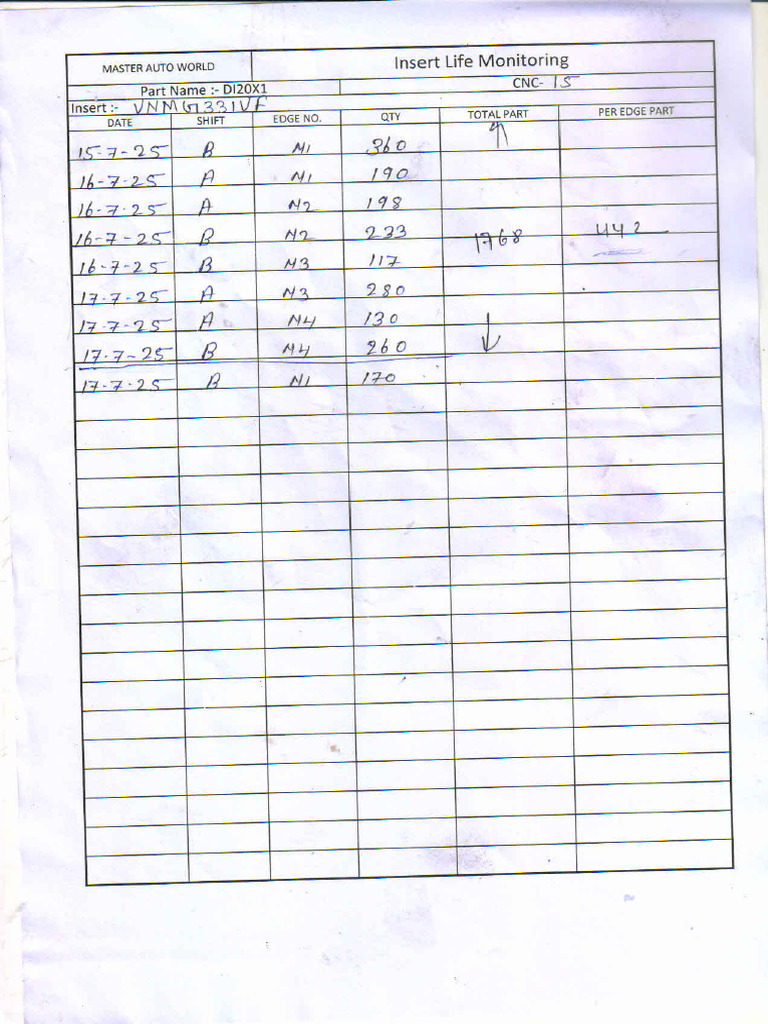 MASTER AUTO WORLD Insert Life Monitoring
Part Name :- DI20X1 CNC- 15
Insert :- VNMG331VF
DATE SHIFT EDGE NO. QTY TOTAL PART PER EDGE PART
15-7-25 B N1 360
16-7-25 A N1 190
16-7-25 A N2 198
16-7-25 B N2 233 1768 442
16-7-25 B N3 117
17-7-25 A N3 280
17-7-25 A N4 130
17-7-25 B N4 260
17-7-25 B N1 170